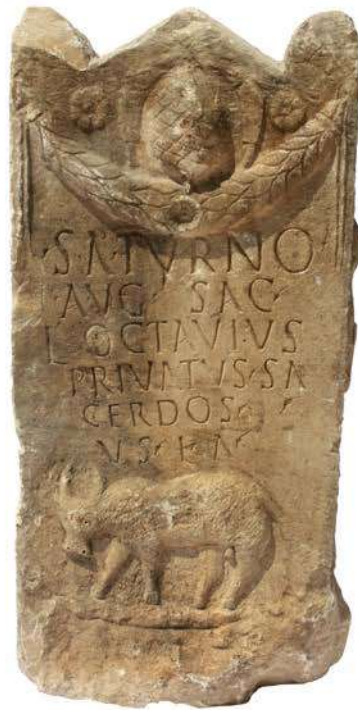 SATVRNO
AVG SAC
L OCTAVIVS
PRIVATVS SA
CERDOS
V S L A